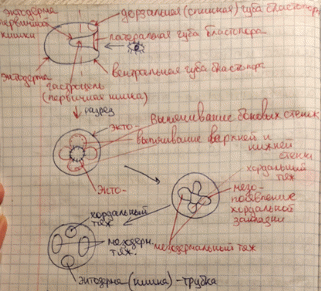 энтодерма
первичной
кишки
дорзальная (спинная) губа бластопора
латеральная губа бластопора
энтодерма
вентральная губа бластопора
гастроцель
(первичная кишка)
разрез
экто-
Выпячивание боковых стенок
выпячивание верхней и
нижней
стенки
экто-
хордальный
тяж
мезо-
хордальной
хордальный
тяж
мезодерм.
тяж.
мезодермальный тяж
энтодерма (кишка) - трубка